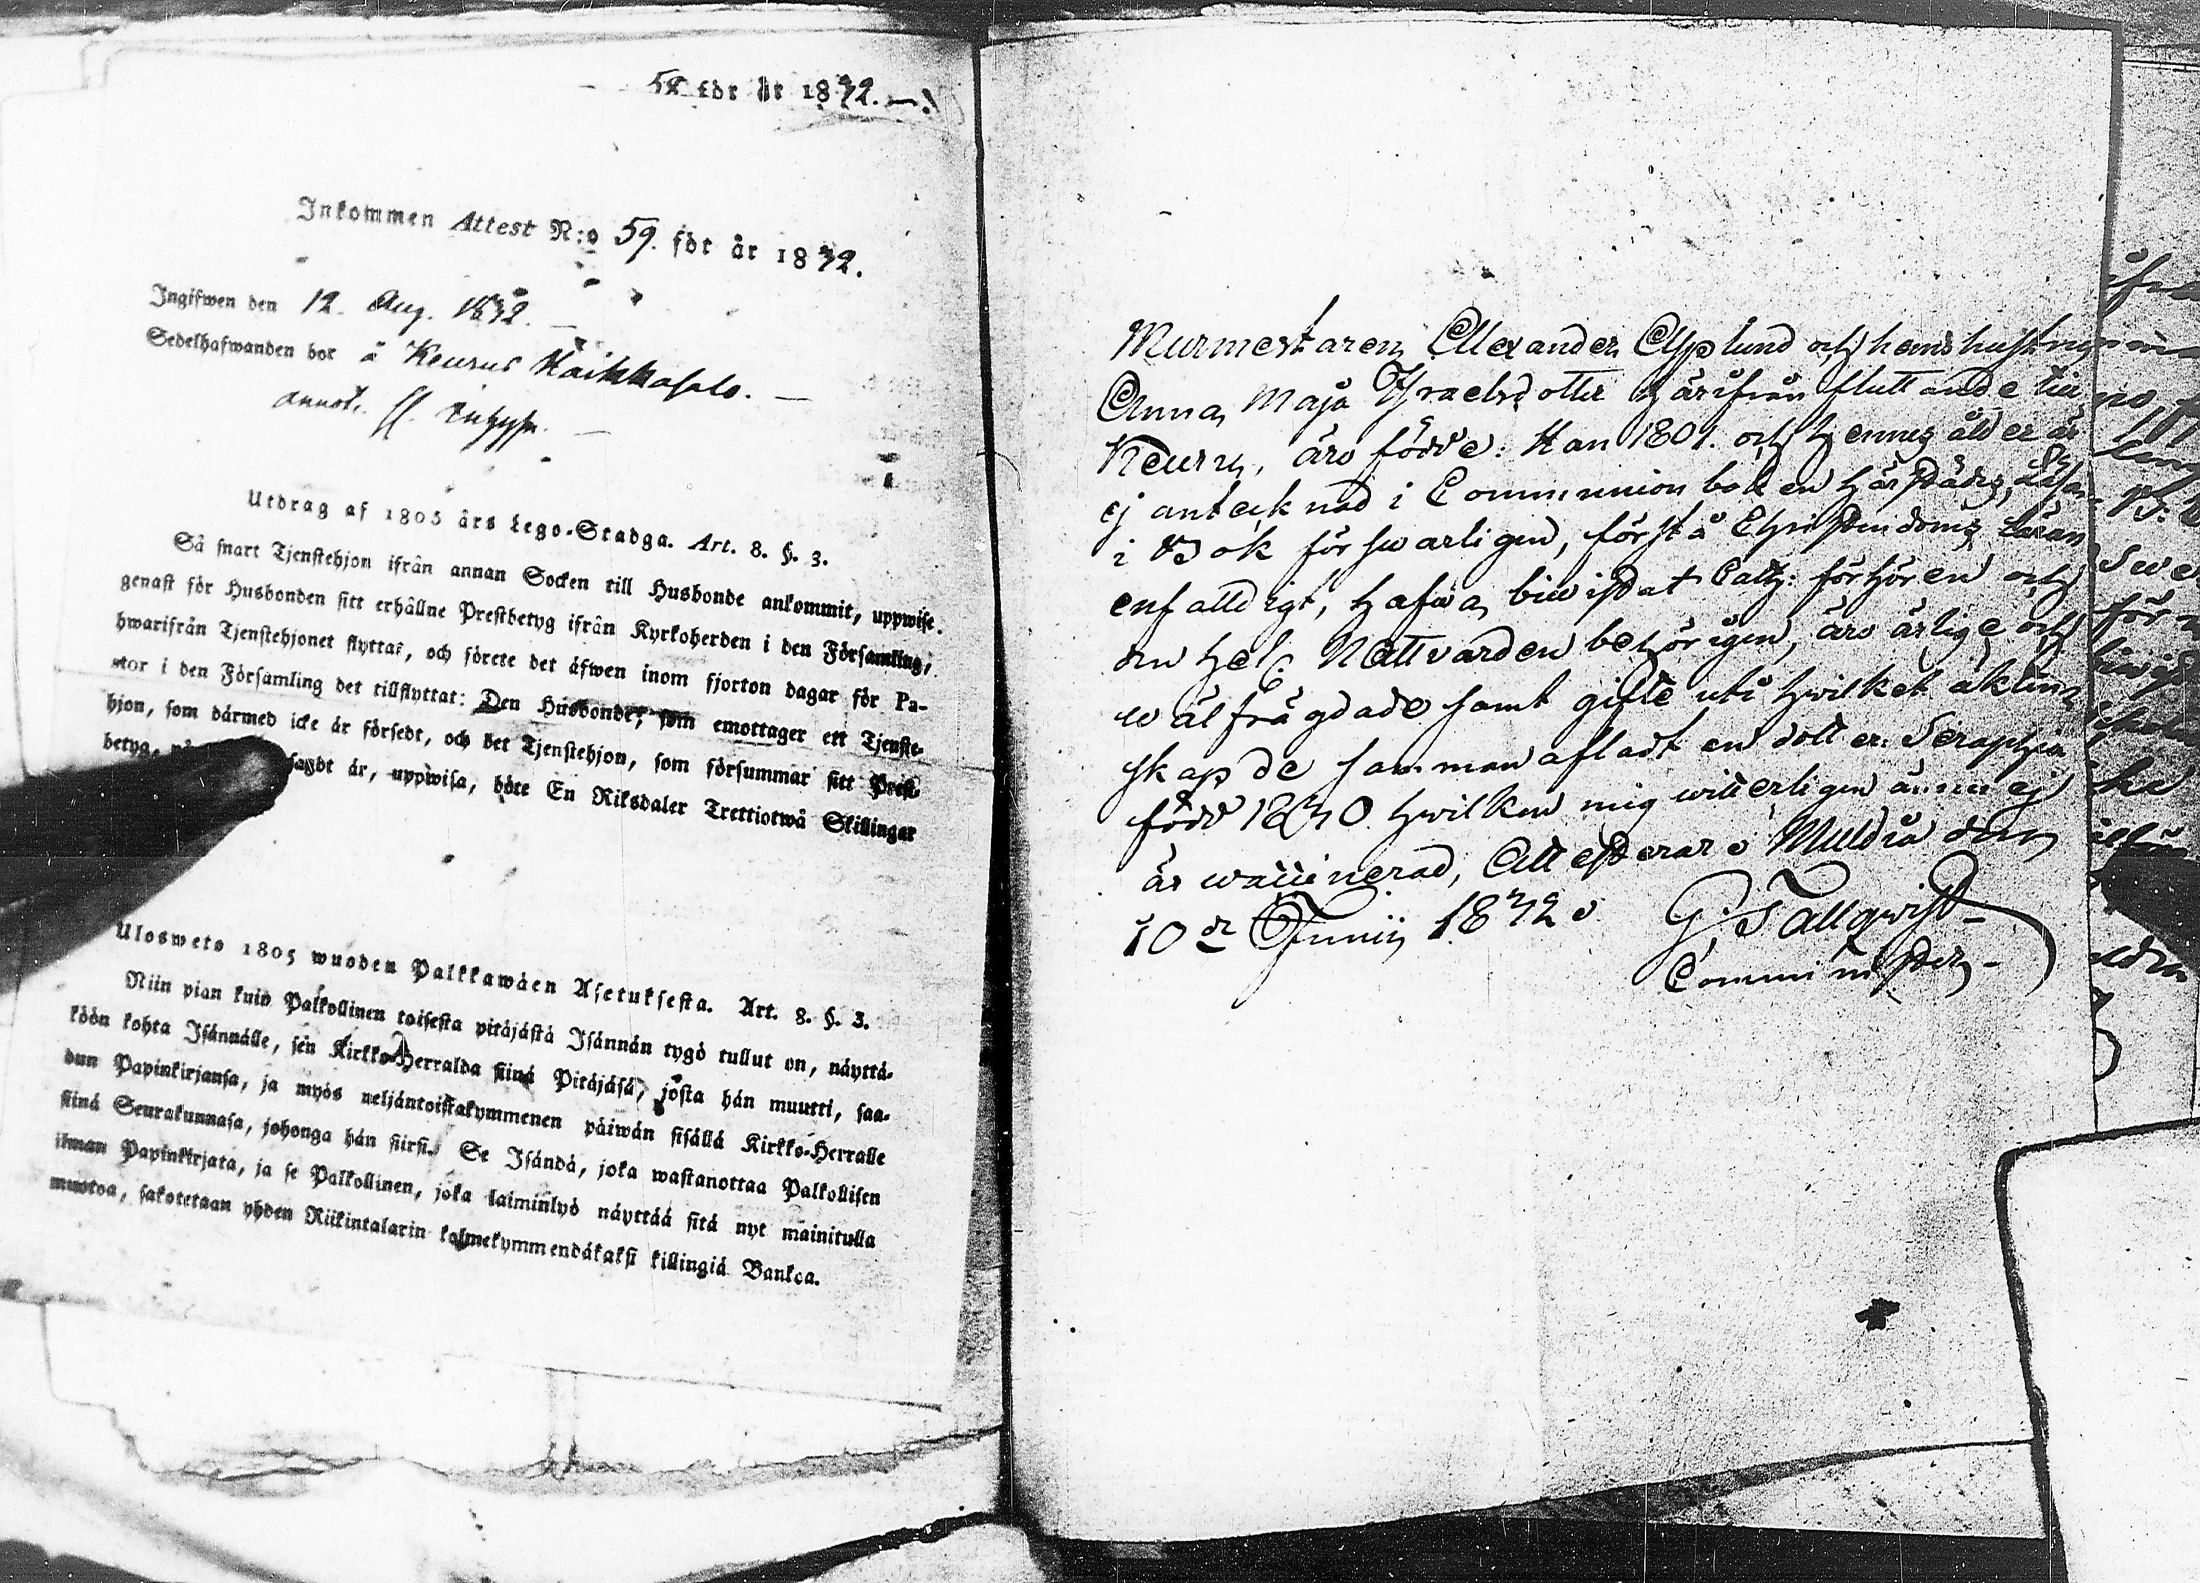 58 för år 1832.
Inkommen Attest N:o 59. för år 1832.
Ingifwen den 12. Aug. 1832.
Sedelhafwanden bor å Keurus Kaikkasalo.
annot.
Utdrag af 1805 års Lego-Stadga. Art. 8. §. 3.
Så snart Tjenstehjon ifrån annan Socken till Husbonde ankommit, uppwise
genast för Husbonden sitt erhållne Prestbetyg ifrån Kyrkoherden i den Församling,
hwarifrån Tjenstehjonet flyttat, och förete det äfwen inom fjorton dagar för Pa-
stor i den Församling det tillflyttat: Den Husbonde, som emottager ett Tjenste-
hjon, som därmed icke är försedt, och det Tjenstehjon, som försummar sitt Prest-
betyg, sagdt är, uppwisa, böte En Riksdaler Trettiotwå Skillingar
Uloswето 1805 wuoden Palkkawäen Asetuksesta. Art. 8. §. 3.
Niin pian kuin Palkollinen toisesta pitäjästä Isännän tygö tullut on, näyttä-
köön kohta Isännälle, sen Kirkko-Herralda siinä Pitäjäsä, josta hän muutti, saa-
dun Papinkirjansa, ja myös neljäntoistakymmenen päiwän sisällä Kirkko-Herralle
siinä Seurakunnasa, johonga hän siirsi. Se Isändä, joka wastanottaa Palkollisen
ilman Papinkirjata, ja se Palkollinen, joka laiminlyö näyttää sitä nyt mainitulla
muotoa, sakotetaan yhden Riikintalarin kolmekymmendäkaksi killingiä Bankoa.
Murmestaren Alexander Asplund och hans hustru
Anna Maja Ysraelsdotter härifrån fluttande till
Keuru, äro födde: Han 1801. och hennes ålder är
ej antecknad i Communion boken härstädes, Läsa
i Bok förswarligen, förstå Christendoms läran
enfalldigt, hafwa biwistat Catz: förhören och
den Hel: Nattvarden behörigen, äro ärlige och
wälfrägdade samt gifte uti hwilket äkten-
skap de samman afladt en dotter: Seraphia
född 1830. hwilken mig witterligen ännu ej
är waccinerad, Attesterar i Muldia den
10de Junii 1832.
G. Tallqwist
Comminister